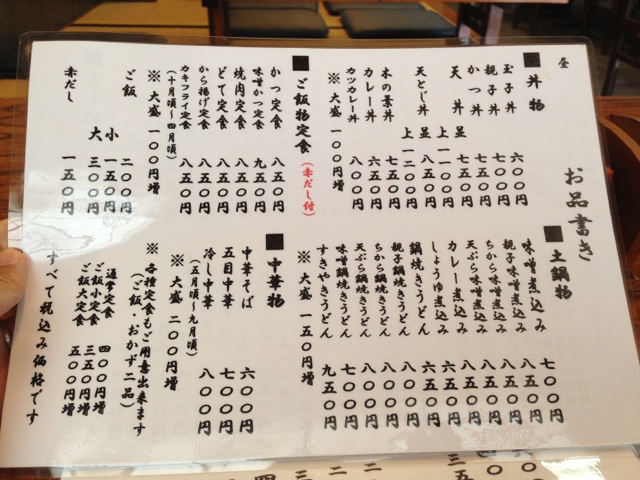 昼
お品書き
■丼物
玉子丼 六〇〇円
親子丼 七五〇円
かつ丼 七五〇円
天丼 並 七五〇円
上 一一〇〇円
天とじ丼 並 八五〇円
上 一二〇〇円
木の葉丼 六五〇円
カレー丼 七五〇円
カツカレー丼 八〇〇円
※大盛 一〇〇円増
■ご飯物定食(赤だし付)
かつ定食 八五〇円
味噌かつ定食 九五〇円
焼肉定食 八五〇円
どて定食 八五〇円
から揚げ定食 八五〇円
カキフライ定食 八五〇円
(十月頃~四月頃)
※大盛 一〇〇円増
ご飯 小 二〇〇円
大 三〇〇円
赤だし 一五〇円
■土鍋物
味噌煮込み 七〇〇円
親子味噌煮込み 八〇〇円
ちから味噌煮込み 八五〇円
天ぷら味噌煮込み
カレー煮込み
しょうゆ煮込み 六五〇円
鍋焼きうどん 六五〇円
親子鍋焼きうどん
ちから鍋焼きうどん 八〇〇円
天ぷら鍋焼きうどん
味噌鍋焼きうどん 七〇〇円
すきやきうどん 九五〇円
※大盛 一五〇円増
■中華物
中華そば 六〇〇円
五目中華 七〇〇円
冷し中華 八〇〇円
(五月頃~九月頃)
※大盛 二〇〇円増
※各種定食もご用意出来ます
(ご飯・おかず二品)
通常定食 四〇〇円増
ご飯小定食 三五〇円増
ご飯大定食 五〇〇円増
すべて税込み価格です